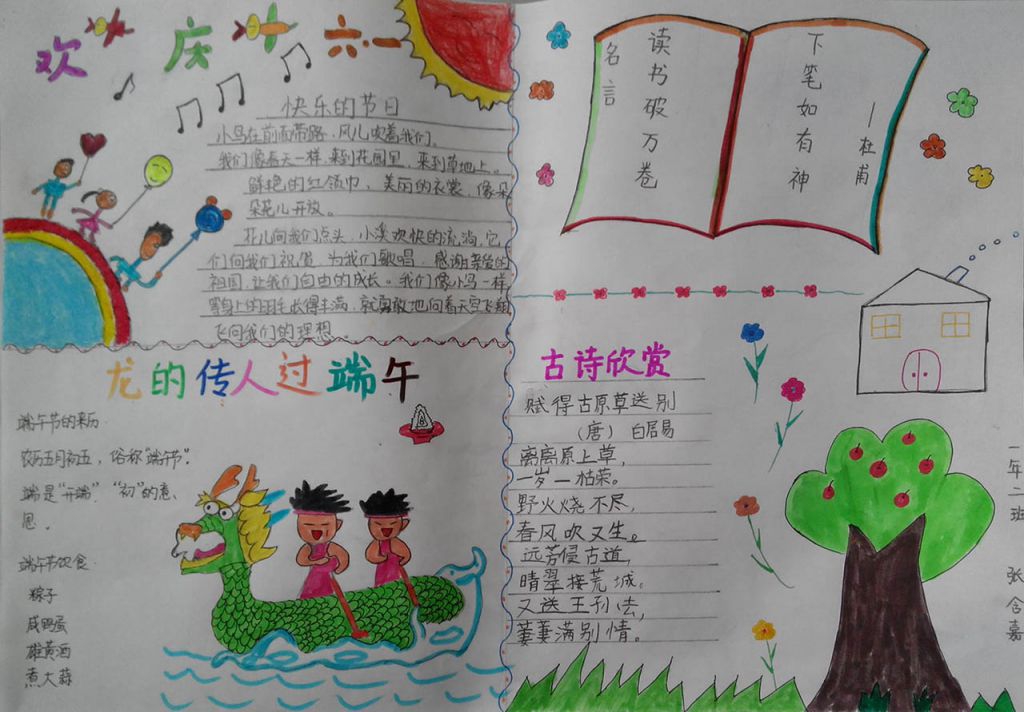 欢庆六一
快乐的节日
小鸟在前面带路,风儿吹着我们。
我们像春天一样,来到花园里,来到草地上。
鲜艳的红领巾,美丽的衣裳,像朵
朵花儿开放。
花儿向我们点头,小溪欢快的流淌,它
们向我们祝贺,为我们歌唱,感谢亲爱的
祖国,让我们自由的成长。我们像小鸟一样
等身上的羽毛长得丰满,就勇敢地向着天空飞翔
飞向我们的理想。
读书破万卷
下笔如有神
名言
—杜甫
龙的传人过端午
端午节的来历
农历五月初五,俗称"端午节".
端是"开端""初"的意
思。
端午节饮食
粽子
咸鸭蛋
雄黄酒
煮大蒜
古诗欣赏
赋得古原草送别
(唐) 白居易
离离原上草,
一岁一枯荣。
野火烧不尽,
春风吹又生。
远芳侵古道,
晴翠接荒城。
又送王孙去,
萋萋满别情。
一年二班 张含嘉